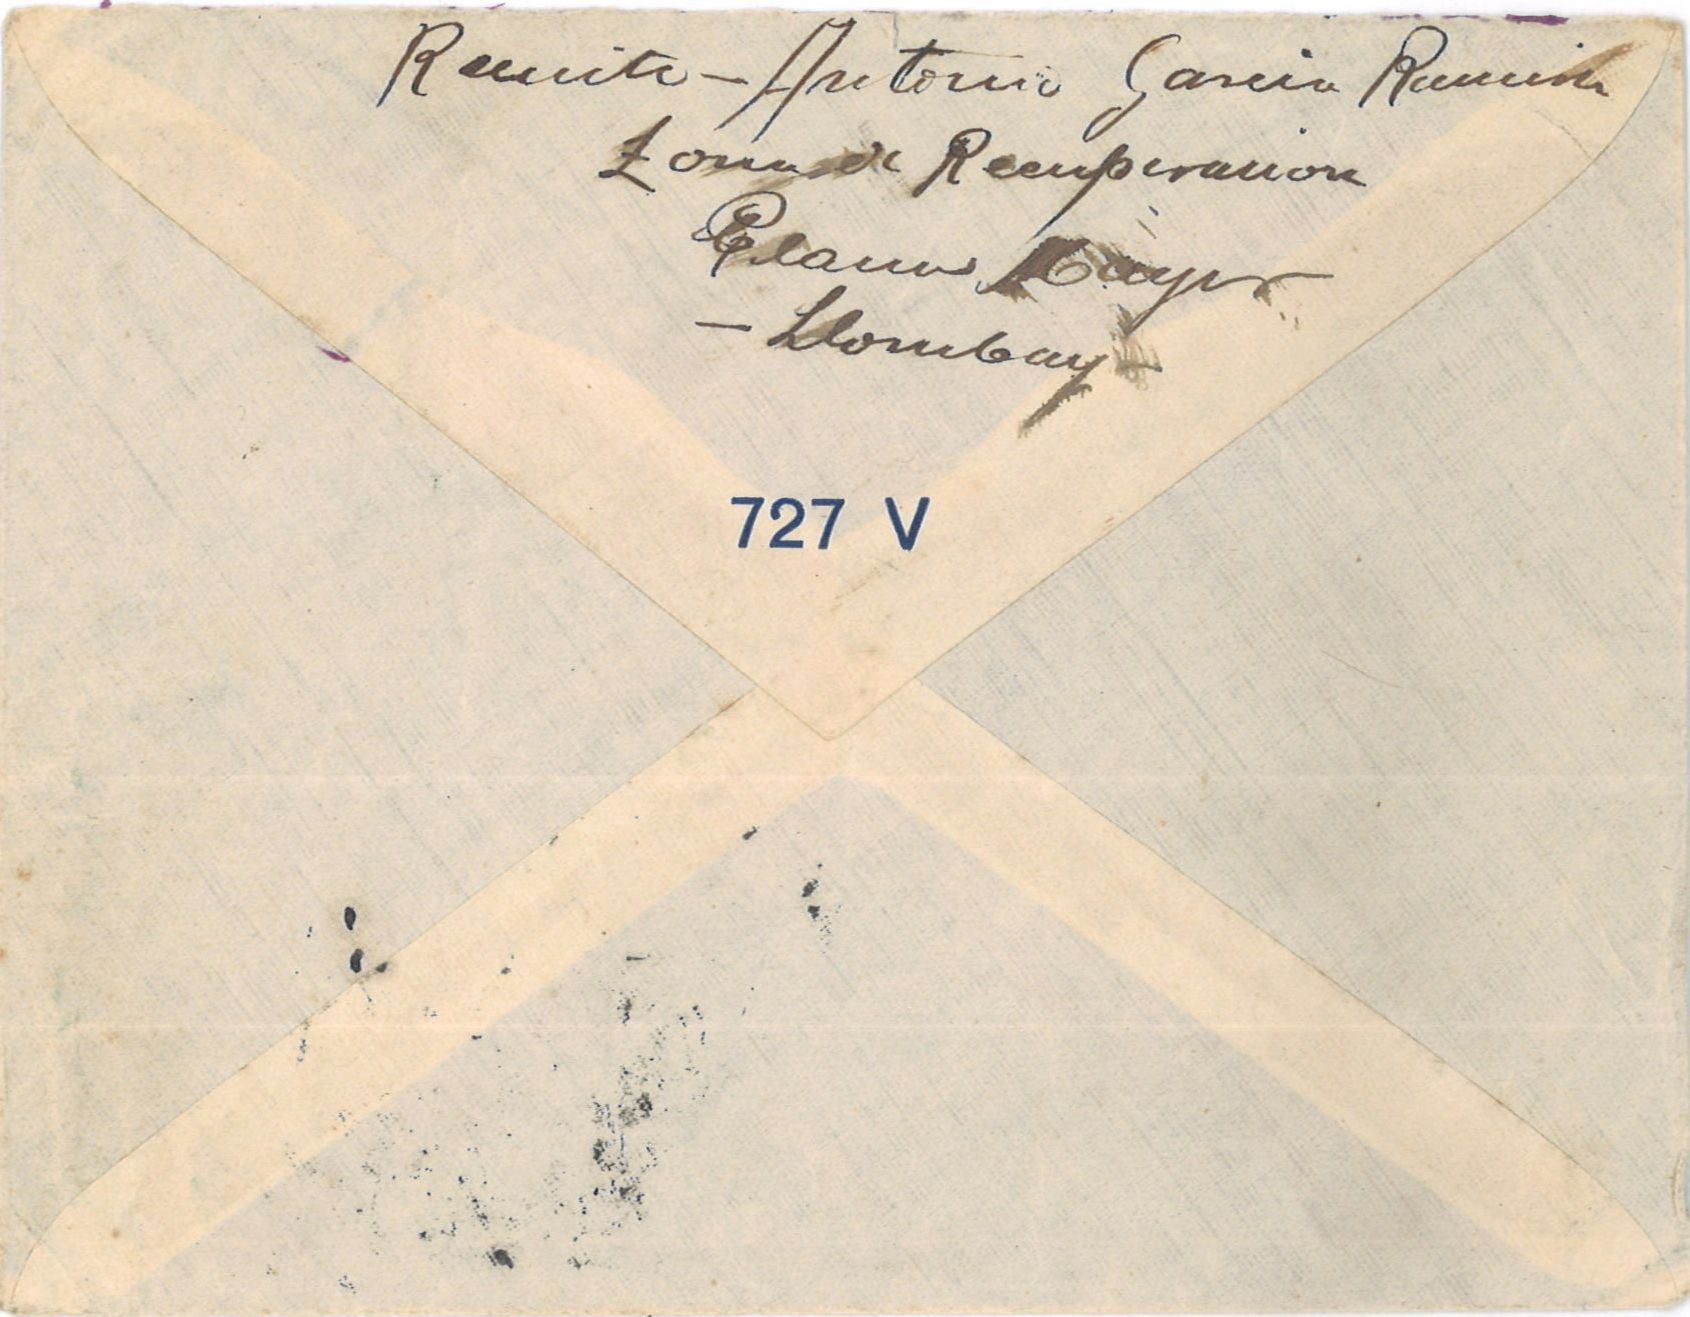 Remite - Antonio Garcia Ramirez
Zona de Recuperacion
Plana Mayor
- Llombay -
727 V